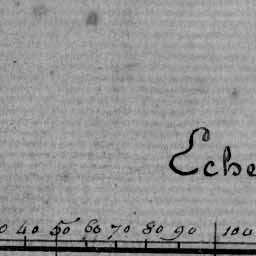 Eche
0 40 50 60 70 80 90 100